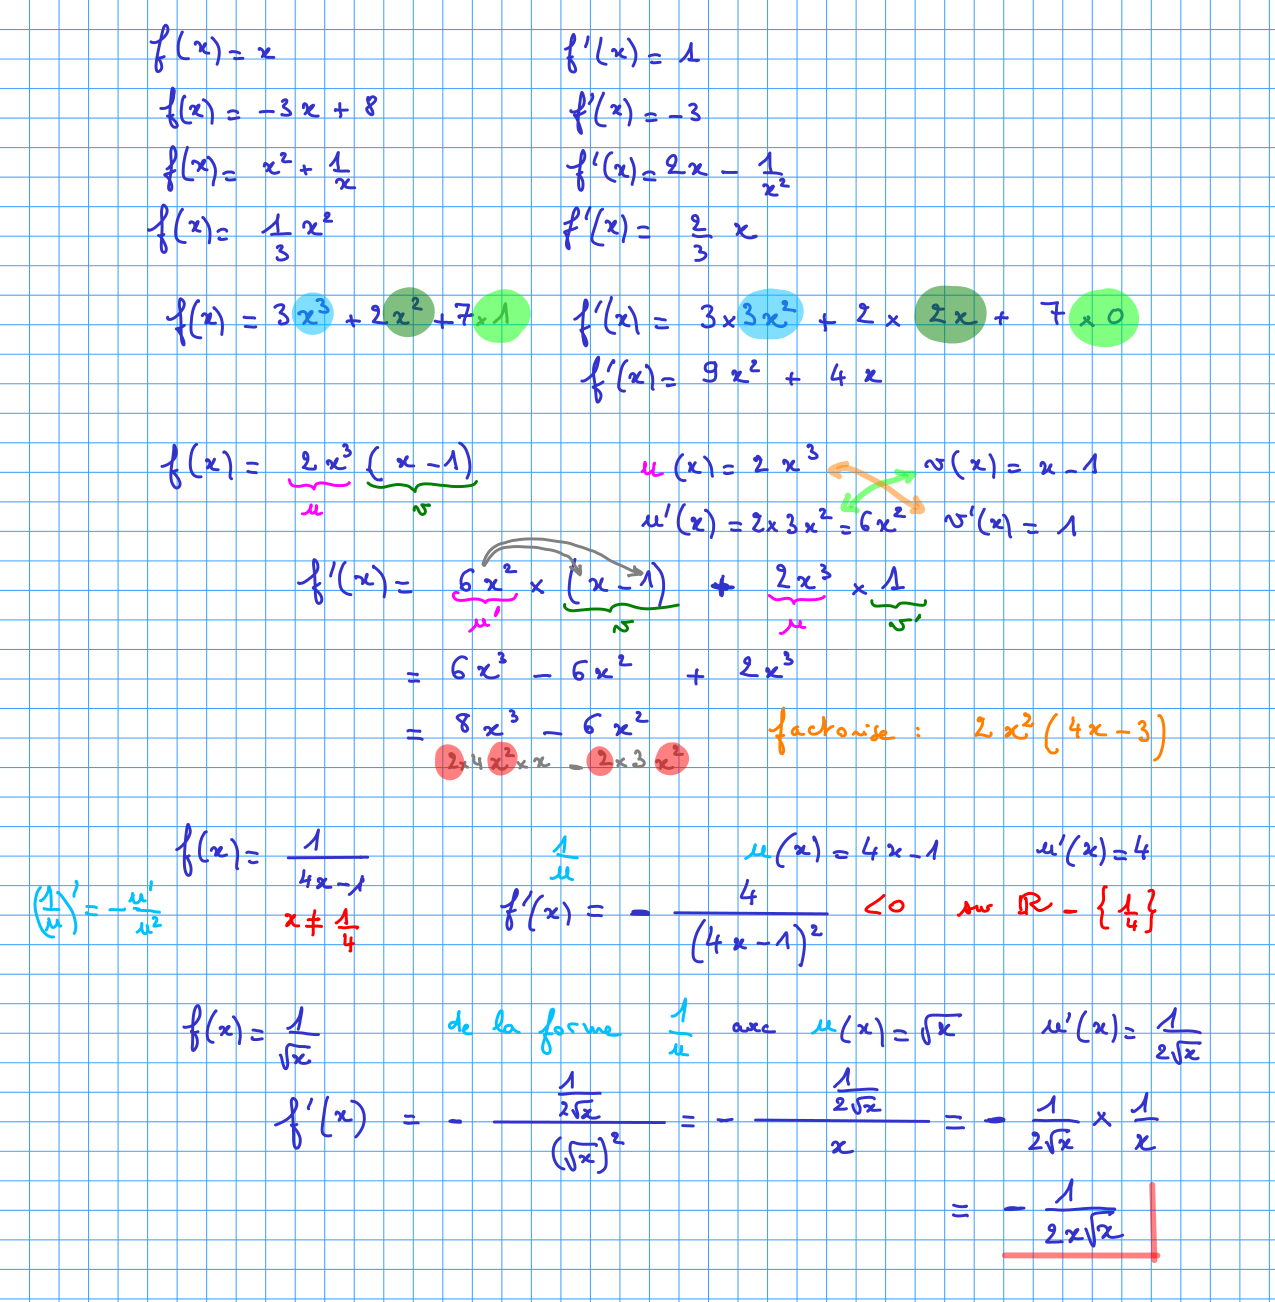 f(x) = x    f'(x) = 1
f(x) = -3x + 8    f'(x) = -3
f(x) = x² + 1/x    f'(x) = 2x - 1/x²
f(x) = 1/3 x²    f'(x) = 2/3 x
f(x) = 3x³ + 2x² + 7×1    f'(x) = 3×3x² + 2×2x + 7×0
f'(x) = 9x² + 4x
f(x) = 2x³ (x-1)    u(x) = 2x³    v(x) = x-1
u    v
u'(x) = 2×3x² = 6x²    v'(x) = 1
f'(x) = 6x² × (x-1) + 2x³ × 1
u'    v    u    v'
= 6x³ - 6x² + 2x³
= 8x³ - 6x²    factorise : 2x² (4x-3)
2×4x²×x - 2×3x²
f(x) = 1/(4x-1)    1/u    u(x) = 4x-1    u'(x) = 4
(1/u)' = -u'/u²    x ≠ 1/4    f'(x) = - 4/(4x-1)²    <0 sur ℝ - {1/4}
f(x) = 1/√x    de la forme 1/u avec u(x) = √x    u'(x) = 1/(2√x)
f'(x) = - (1/(2√x))/(√x)² = - (1/(2√x))/x = - 1/(2√x) × 1/x
= - 1/(2x√x)